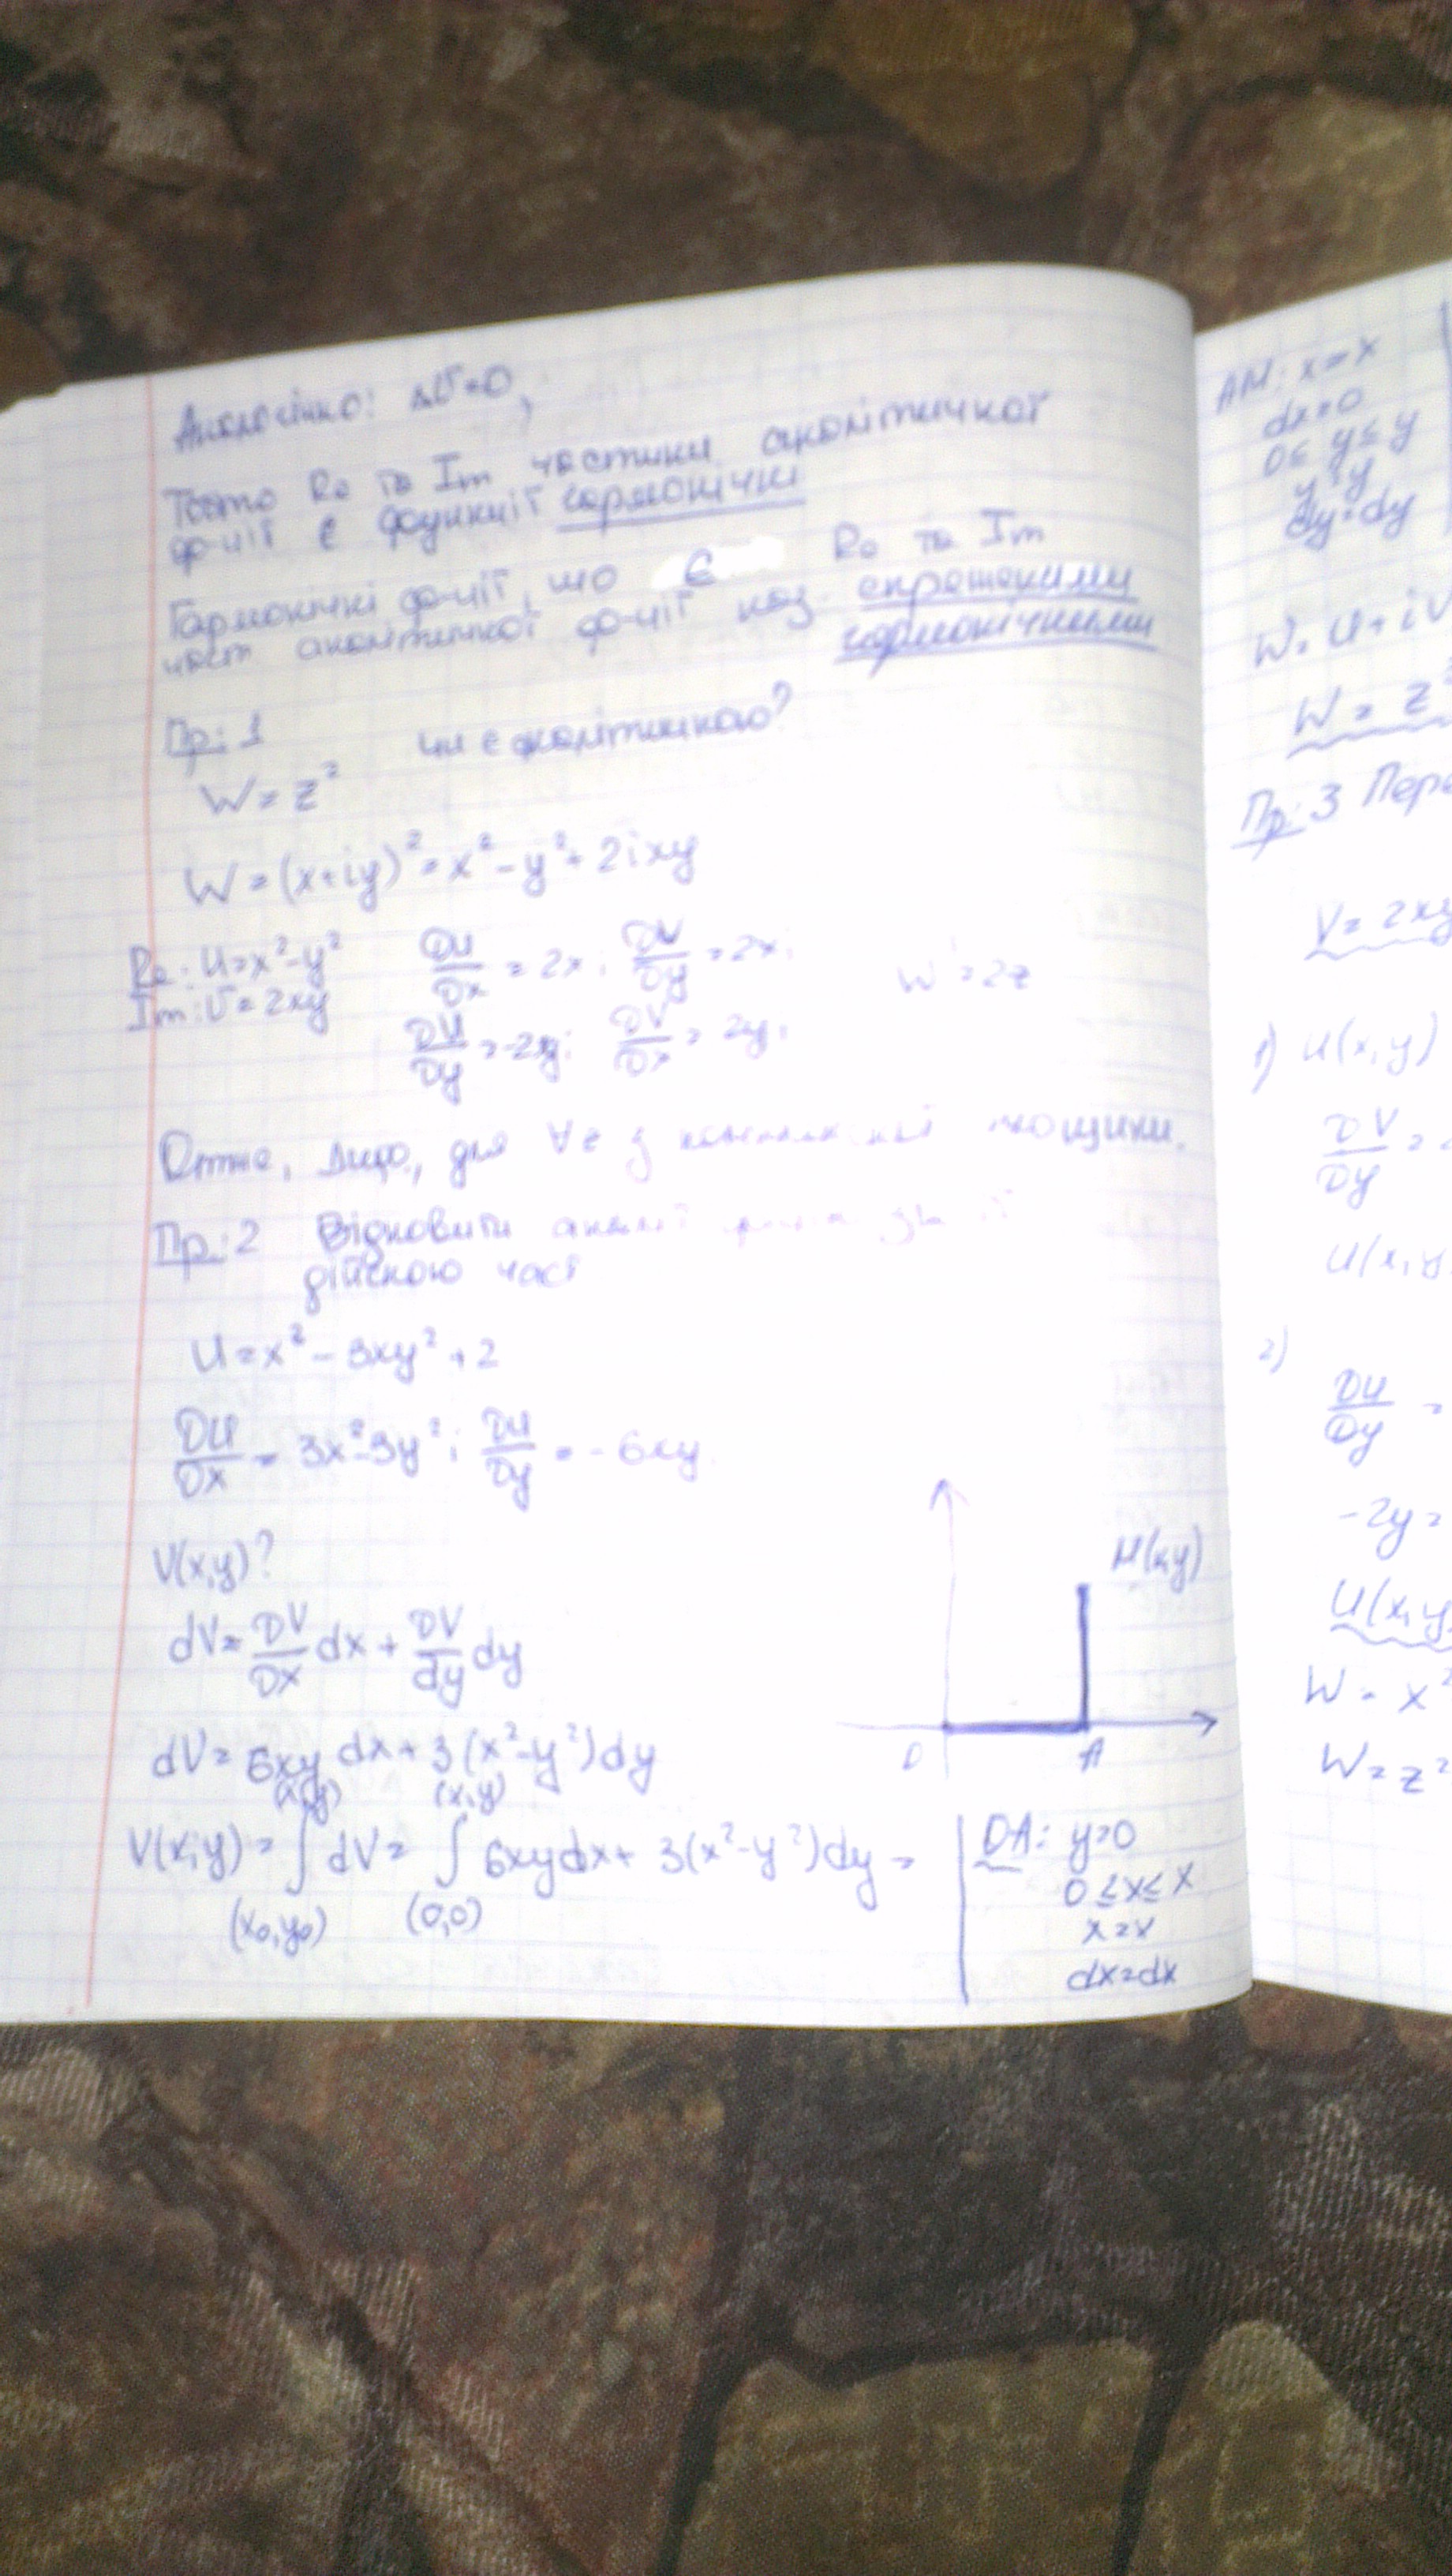 Аналогічно: ΔU=0,
Тобто Re та Im частини аналітичної
ф-ції є функції гармонічні
Гармонічні ф-ції, що є Re та Im
част аналітичної ф-ції наз. спряженими
гармонічними
Пр: 1 чи є аналітичною?
W = z²
W = (x+iy)² = x² - y² + 2ixy
Re: U=x²-y² ∂U/∂x = 2x; ∂V/∂y = 2x;
Im: V = 2xy ∂U/∂y = -2y; ∂V/∂x = 2y; W' = 2z
Отже, для ∀z з площини.
Пр: 2 Відновити
дійсною част
U = x² - 3xy² + 2
∂U/∂x = 3x² - 3y²; ∂U/∂y = -6xy.
V(x,y)?
dV = ∂V/∂x dx + ∂V/dy dy
M(x,y)
O A
dV = 6xy dx + 3(x²-y²)dy
(x,y) (x,y)
V(x,y) = ∫ dV = ∫ 6xydx + 3(x²-y²)dy =
(x₀,y₀) (0,0)
OA: y=0
0 ≤ x ≤ x
x=x
dx=dx
AM: x=x
dx=0
0 ≤ y ≤ y
y=y
dy=dy
W = U + iV
W = z
Пр: 3
V = 2xy
1) U(x,y)
∂V/∂y =
U(x,y
2)
∂U/∂y =
-2y =
U(x,y
W = x²
W = z²